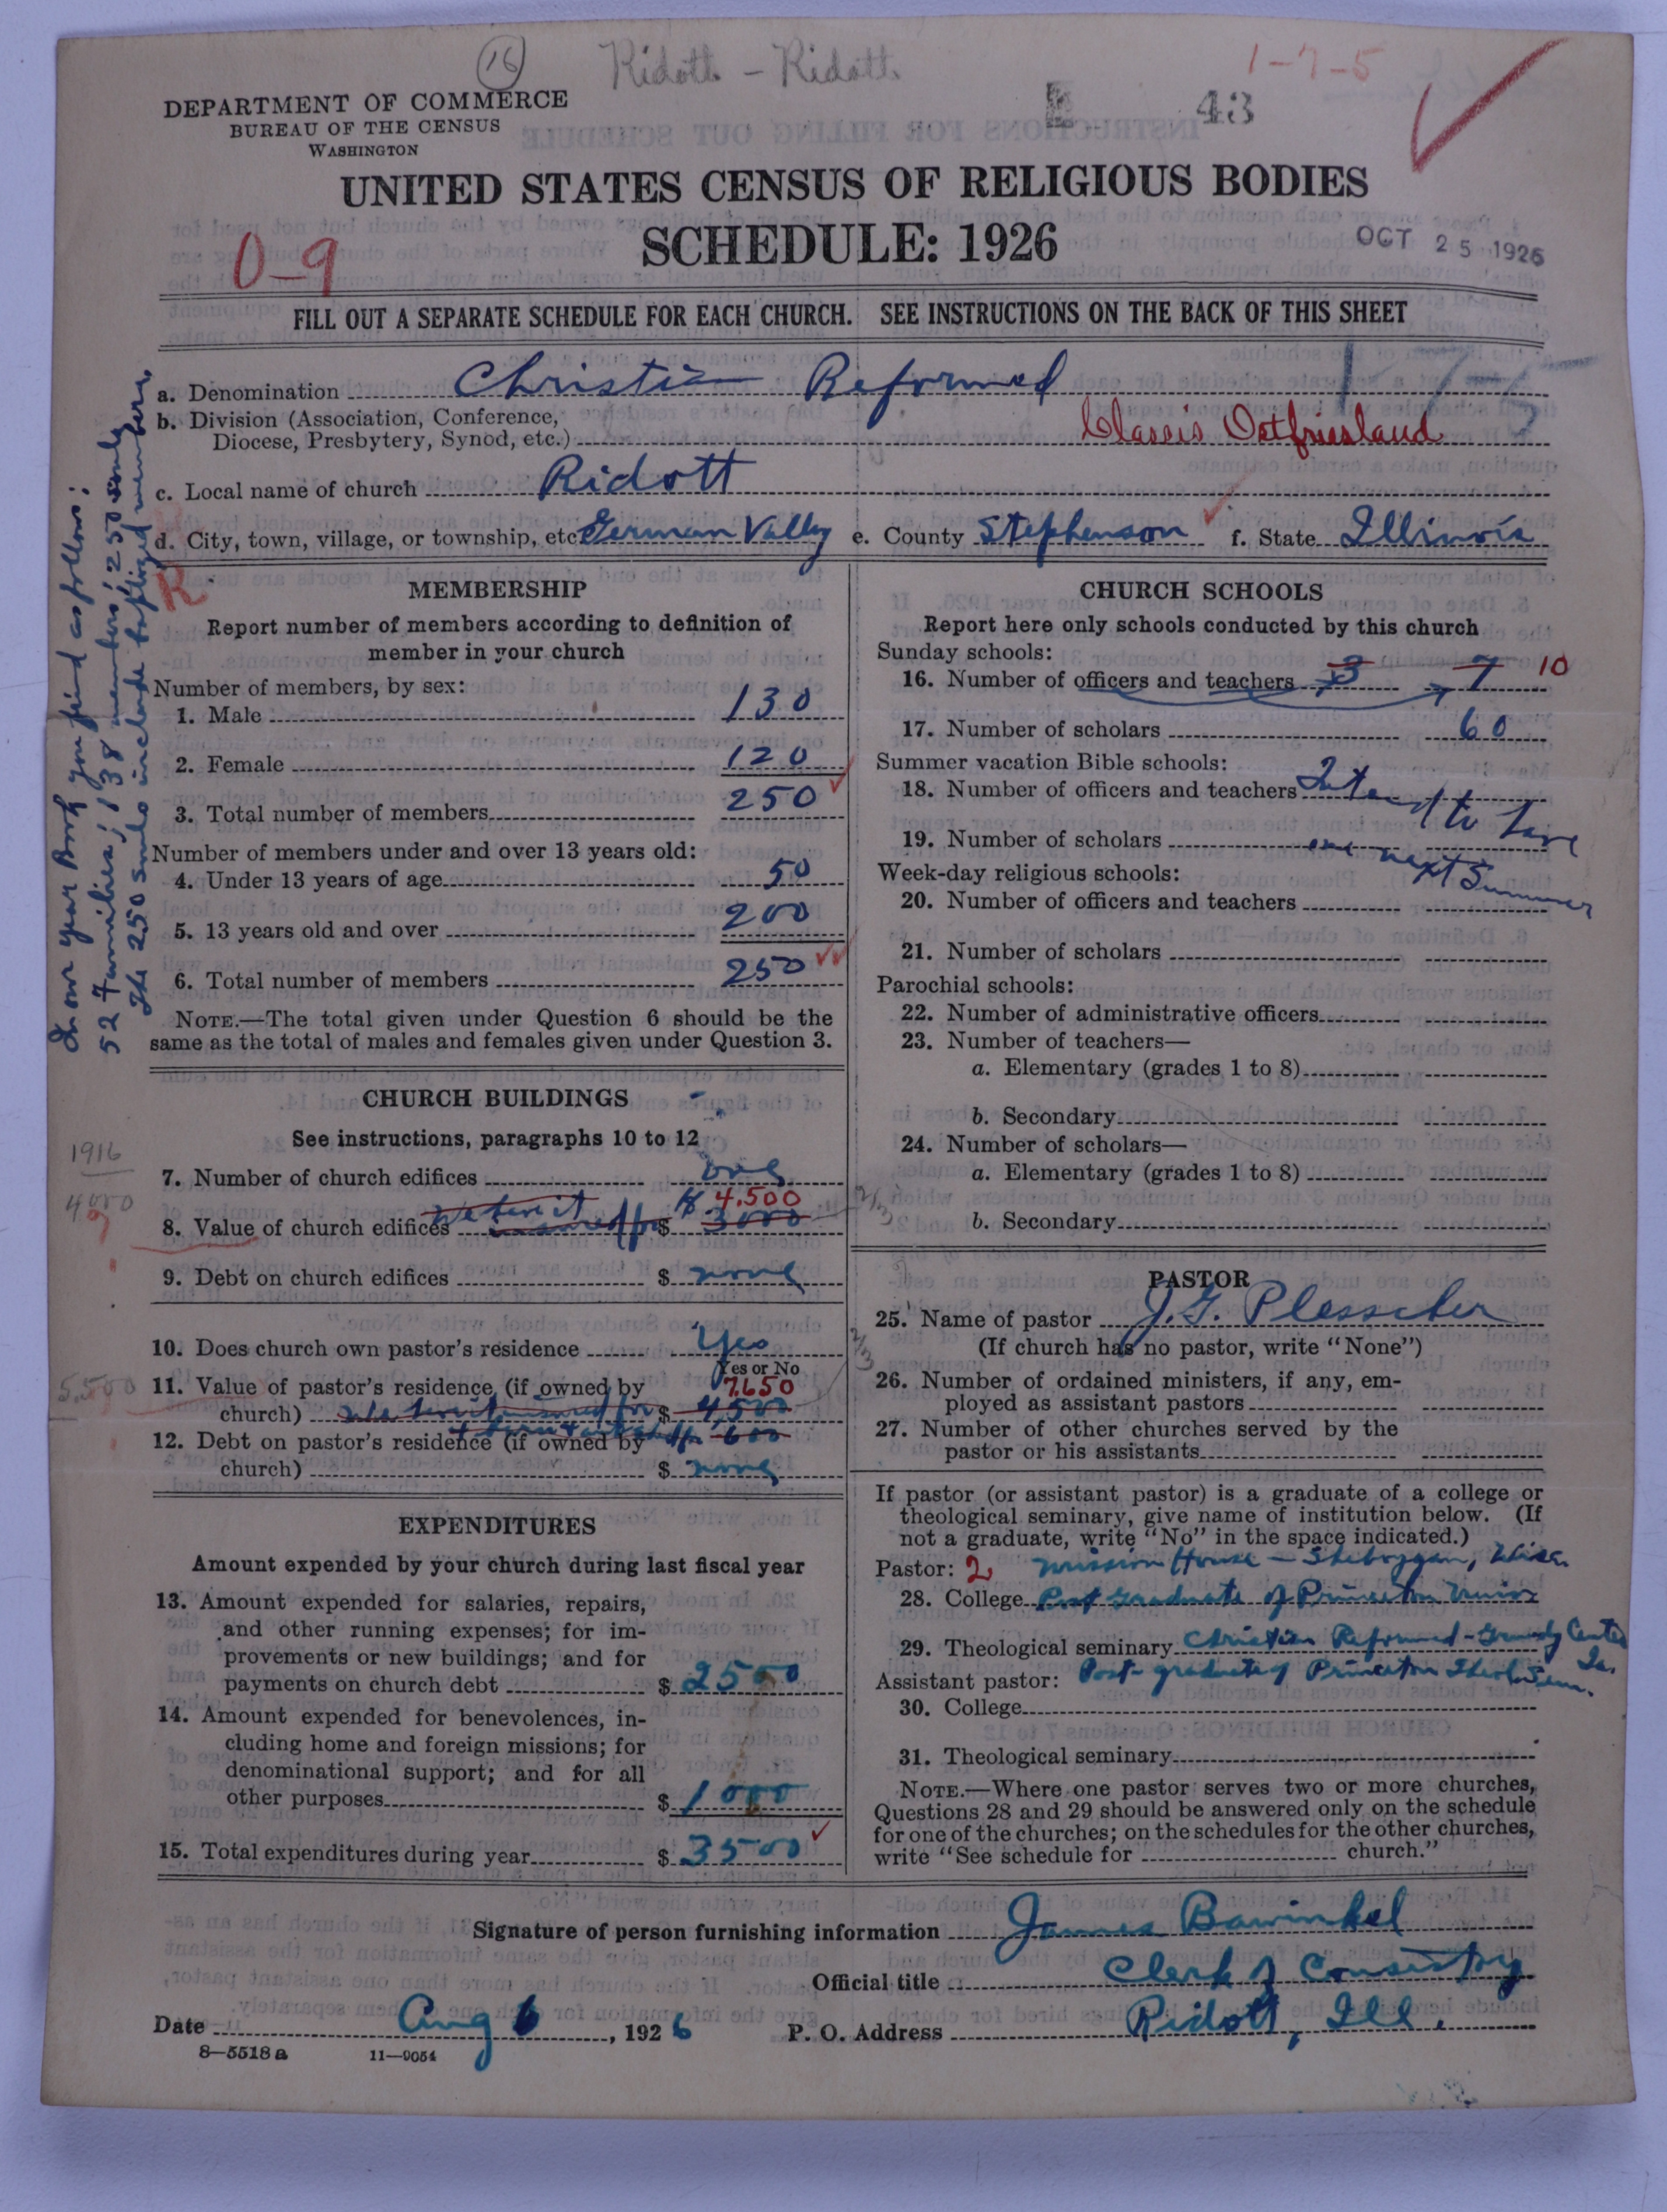 16
Ridott - Ridott
1-7-5
43
DEPARTMENT OF COMMERCE
BUREAU OF THE CENSUS
WASHINGTON
UNITED STATES CENSUS OF RELIGIOUS BODIES
SCHEDULE: 1926
OCT 25 1926
0-9
FILL OUT A SEPARATE SCHEDULE FOR EACH CHURCH. SEE INSTRUCTIONS ON THE BACK OF THIS SHEET
a. Denomination Christian Reformed
b. Division (Association, Conference,
Diocese, Presbytery, Synod, etc.) Classis Ostfriesland
c. Local name of church Ridott
d. City, town, village, or township, etc German Valley e. County Stephenson f. State Illinois
R
In our year Book you find as follows:
52 families; 138 members; 250 souls
The 250 souls include baptized members.
MEMBERSHIP
Report number of members according to definition of
member in your church
Number of members, by sex:
1. Male 130
2. Female 120
3. Total number of members 250
Number of members under and over 13 years old:
4. Under 13 years of age 50
5. 13 years old and over 200
6. Total number of members 250
NOTE.—The total given under Question 6 should be the
same as the total of males and females given under Question 3.
CHURCH BUILDINGS
See instructions, paragraphs 10 to 12
1916
7. Number of church edifices one
4000
4,500
8. Value of church edifices We have it insured for $ 3000
9. Debt on church edifices $ none
10. Does church own pastor's residence Yes
Yes or No
5,500
11. Value of pastor's residence (if owned by 7,650
church) We have it insured for $ 4,500
12. Debt on pastor's residence (if owned by 600
church) $ none
EXPENDITURES
Amount expended by your church during last fiscal year
13. Amount expended for salaries, repairs,
and other running expenses; for im-
provements or new buildings; and for
payments on church debt $ 2500
14. Amount expended for benevolences, in-
cluding home and foreign missions; for
denominational support; and for all
other purposes $ 1000
15. Total expenditures during year $ 3500
CHURCH SCHOOLS
Report here only schools conducted by this church
Sunday schools:
16. Number of officers and teachers 3 7 10
17. Number of scholars 60
Summer vacation Bible schools:
18. Number of officers and teachers Intend to have
19. Number of scholars one next Summer
Week-day religious schools:
20. Number of officers and teachers
21. Number of scholars
Parochial schools:
22. Number of administrative officers
23. Number of teachers—
a. Elementary (grades 1 to 8)
b. Secondary
24. Number of scholars—
a. Elementary (grades 1 to 8)
b. Secondary
PASTOR
25. Name of pastor J. G. Plesscher
(If church has no pastor, write "None")
26. Number of ordained ministers, if any, em-
ployed as assistant pastors
27. Number of other churches served by the
pastor or his assistants
If pastor (or assistant pastor) is a graduate of a college or
theological seminary, give name of institution below. (If
not a graduate, write "No" in the space indicated.)
Pastor: 2 Mission House - Sheboygan, Wisc.
28. College Post Graduate of Princeton Univ
29. Theological seminary Christian Reformed - Grundy Center Ia.
Assistant pastor: Post-graduate of Princeton Theol. Sem.
30. College
31. Theological seminary
NOTE.—Where one pastor serves two or more churches,
Questions 28 and 29 should be answered only on the schedule
for one of the churches; on the schedules for the other churches,
write "See schedule for church."
Signature of person furnishing information James Bawinkel
Official title Clerk of Consistory
Date Aug 6, 1926 P. O. Address Ridott, Ill.
8—5518 a 11—9054